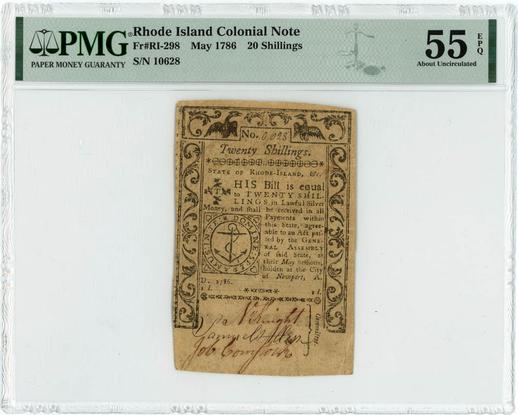 PMG
PAPER MONEY GUARANTY
Rhode Island Colonial Note
Fr#RI-298 May 1786 20 Shillings
S/N 10628
55 EPQ
About Uncirculated
No. 10628
Twenty Shillings.
STATE OF RHODE-ISLAND, &c.
THIS Bill is equal
to TWENTY SHIL-
LINGS, in Lawful Silver
Money, and shall be received in all
Payments within
this State, agree-
able to an Act pas-
sed by the GENE-
RAL ASSEMBLY
of said State, at
their May Sessions,
holden at the City
of Newport, A.
D. 1786.
N Knight
Job Comstock
Committee.